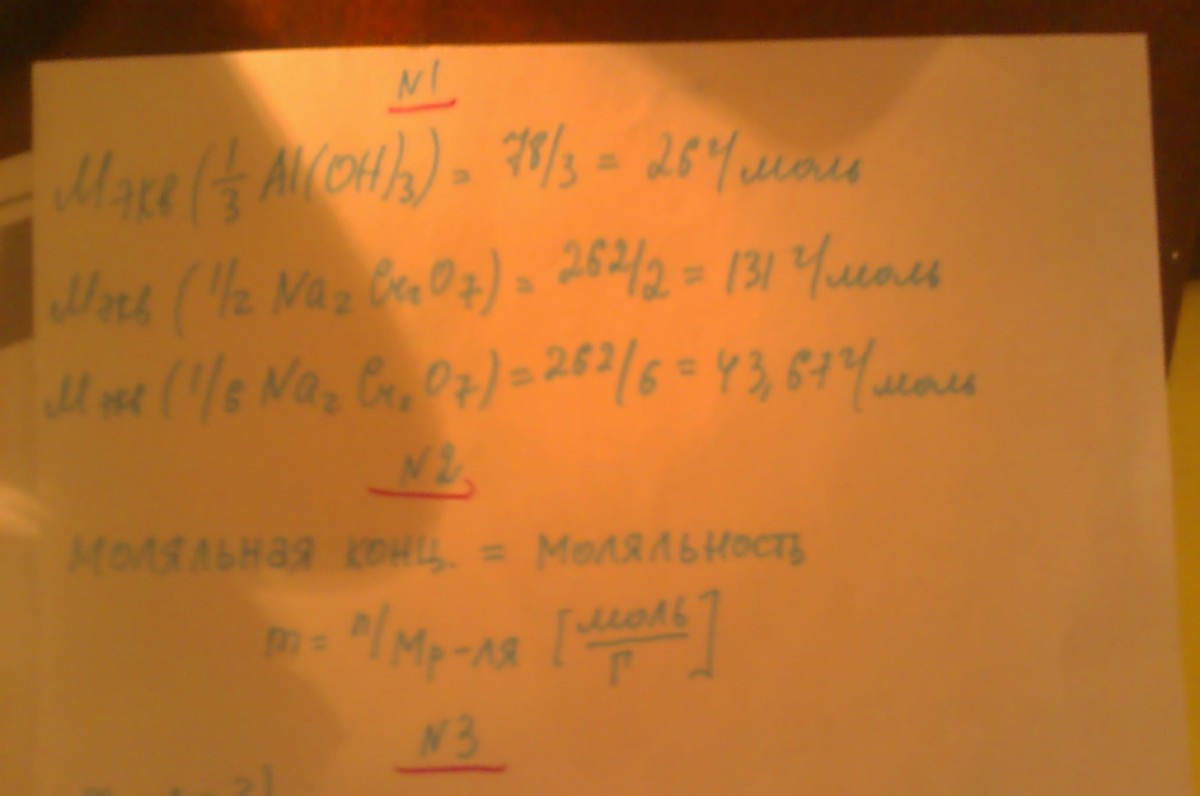 N1
Mэкв (1/3 Al(OH)3) = 78/3 = 26 г/моль
Mэкв (1/2 Na2Cr2O7) = 262/2 = 131 г/моль
Mэкв (1/6 Na2Cr2O7) = 262/6 = 43,67 г/моль
N2
моляльная конц. = моляльность
m = n/Mр-ля [моль/г]
N3